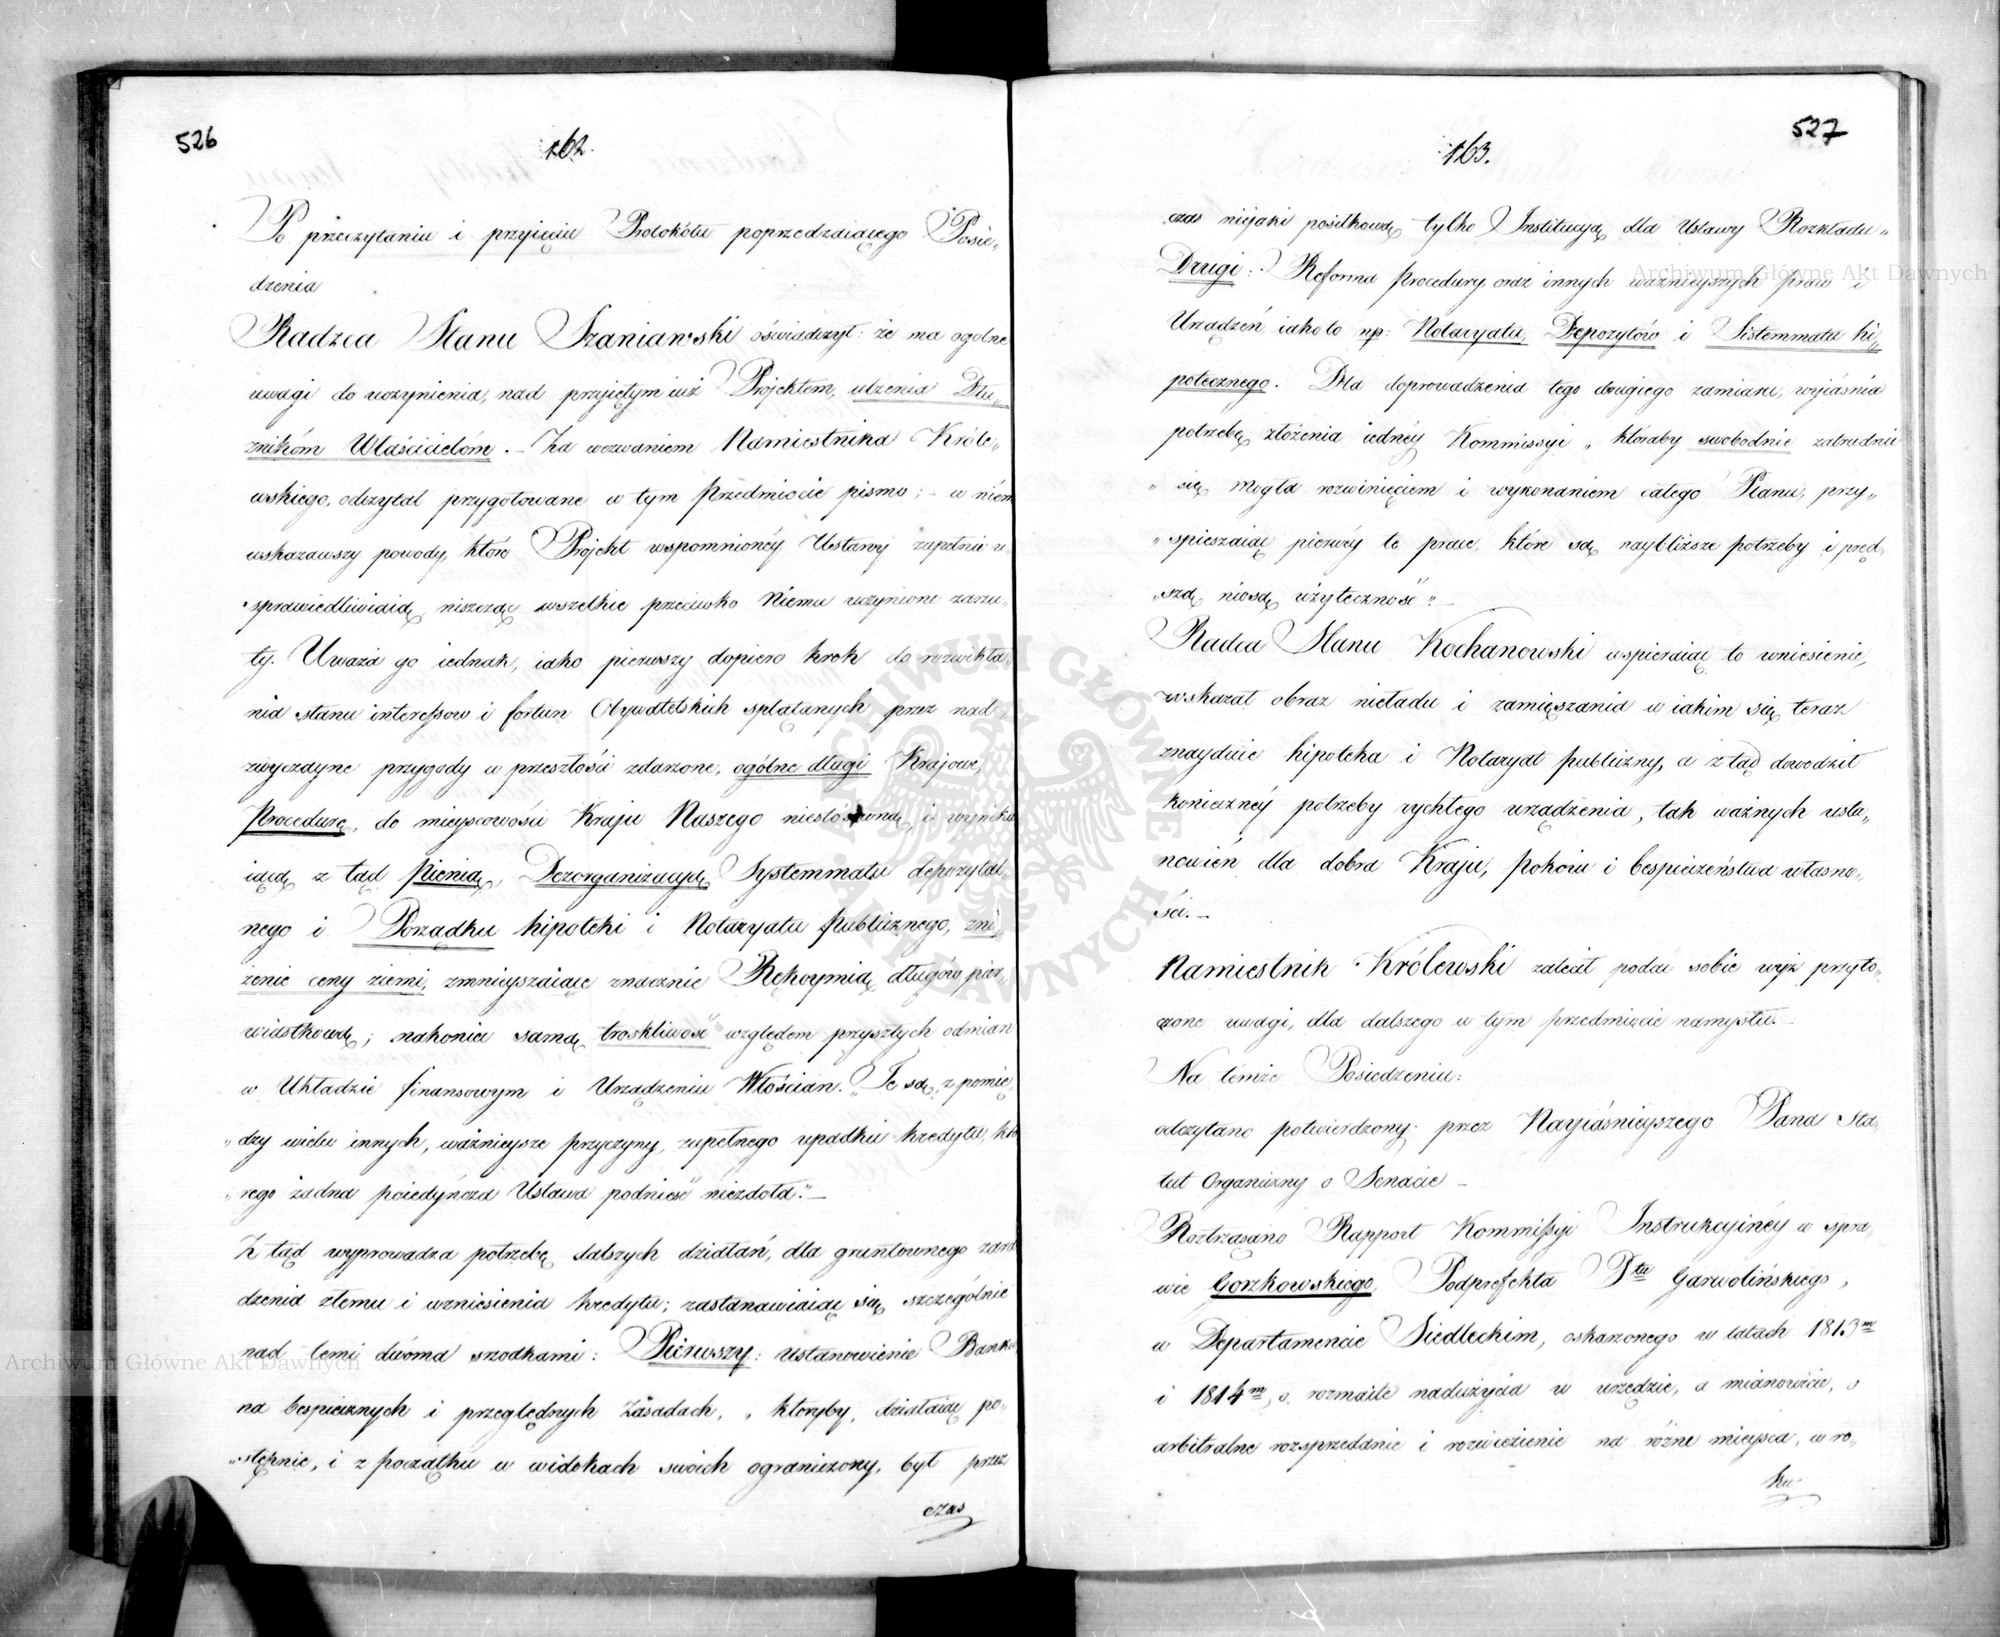 526
162.
Po przeczytaniu i przyięciu Protokółu poprzedzaiącego Posie„
dzenia
Radzca Stanu Szaniawski oświadczył: że ma ogolne
uwagi do uczynienia, nad przyiętym iuż Projektem, ulżenia Dłu„
żnikóm Właścicielóm. — Za wezwaniem Namiestnika Króle„
wskiego, odczytał przygotowane w tym Przedmiocie pismo; — w niem
wskazawszy powody, które Projekt wspomnionéy Ustawy zupełnie u„
sprawiedliwiaią, niszcząc wszelkie przeciwko Niemu uczynione zarzu„
ty. Uważa go iednak, iako pierwszy dopiero krok do rozwikła„
nia stanu interessow i fortun Obywatelskich splątanych przez nad„
zwyczayne przygody w przeszłości zdarzone, ogólne długi Krajowe,
Procedurę, do mieyscowości Kraju Naszego niestósowną, i wynika
iącą z tąd Pienią, Dezorganizacyą Systemmatu depozytal„
nego i Porządku hipoteki i Notaryatu Publicznego, zni„
żenie ceny ziemi, zmnieyszaiące znacznie Rękoymią długów pier„
wiastkową; nakoniec samą troskliwość względem przyszłych odmian
w Układzie finansowym i Urządzeniu Włościan. „Te są, z pomię„
„dzy wielu innych, ważnieysze przyczyny, zupełnego upadku kredytu, któ
„rego żadna poiedyńcza Ustawa podnieść niezdoła." —
Z tąd wyprowadza potrzebę dalszych działań, dla gruntownego zara
dzenia złemu i wzniesienia kredytu; zastanawiaiąc się szczególnie
nad temi dwoma srzodkami: Pierwszy: ustanowienie Banku
na bespiecznych i przeglę̨dnych Zasadach, „ ktoryby, działaiąc po„
„stępnie, i z początku w widokach swoich ograniczony, był przez
czas
527
163.
czas niejaki posiłkową tylko Institucyą dla Ustawy Rozkładu„
Drugi: Reforma Procedury oraz innych ważnieyszych praw i
Urządzeń iako to np: Notaryatu, Depozytów i Sistemmatu hi„
potecznego. Dla doprowadzenia tego drugiego zamiaru, wyiaśnia
potrzebę złożenia iednéy Kommissyi „ ktoraby swobodnie zatrudnić
„ się mogła rozwinięciem i wykonaniem całego Planu, przy„
„spieszaiąc pierwéy te prace, które są naybliższe potrzeby i pręd„
„szą niosą użyteczność". —
Radca Stanu Kochanowski wspieraiąc to wniesienie,
wskazał obraz nieładu i zamięszania w iakim się teraz
znayduie hipoteka i Notaryat publiczny, a z tąd dowodził
konieczney potrzeby rychłego urządzenia, tak ważnych usta„
nowień dla dobra Kraju, pokoiu i bespieczeństwa własno„
ści. —
Namiestnik Królewski zalecił podać sobie wyż przyto„
czone uwagi, dla dalszego w tym przedmiocie namysłu. —
Na temże Posiedzeniu:
odczytano potwierdzony przez Nayiaśnieyszego Pana Sta„
tut Organiczny o Senacie —
Roztrząsano Rapport Kommissyi Instrukcyinéy w spra„
wie Gorzkowskiego, Podprefekta Ptu Garwolińskiego,
w Departamencie Siedleckim, oskarżonego w latach 1813m
i 1814m, o rozmaite nadużycia w urzędzie, a mianowicie, o
arbitralne rozsprzedanie i rozwiezienie na różne mieysca, w ro„
ku
Archiwum Główne Akt Dawnych
Archiwum Główne Akt Dawnych
ARCHIWUM GŁÓWNE AKT DAWNYCH